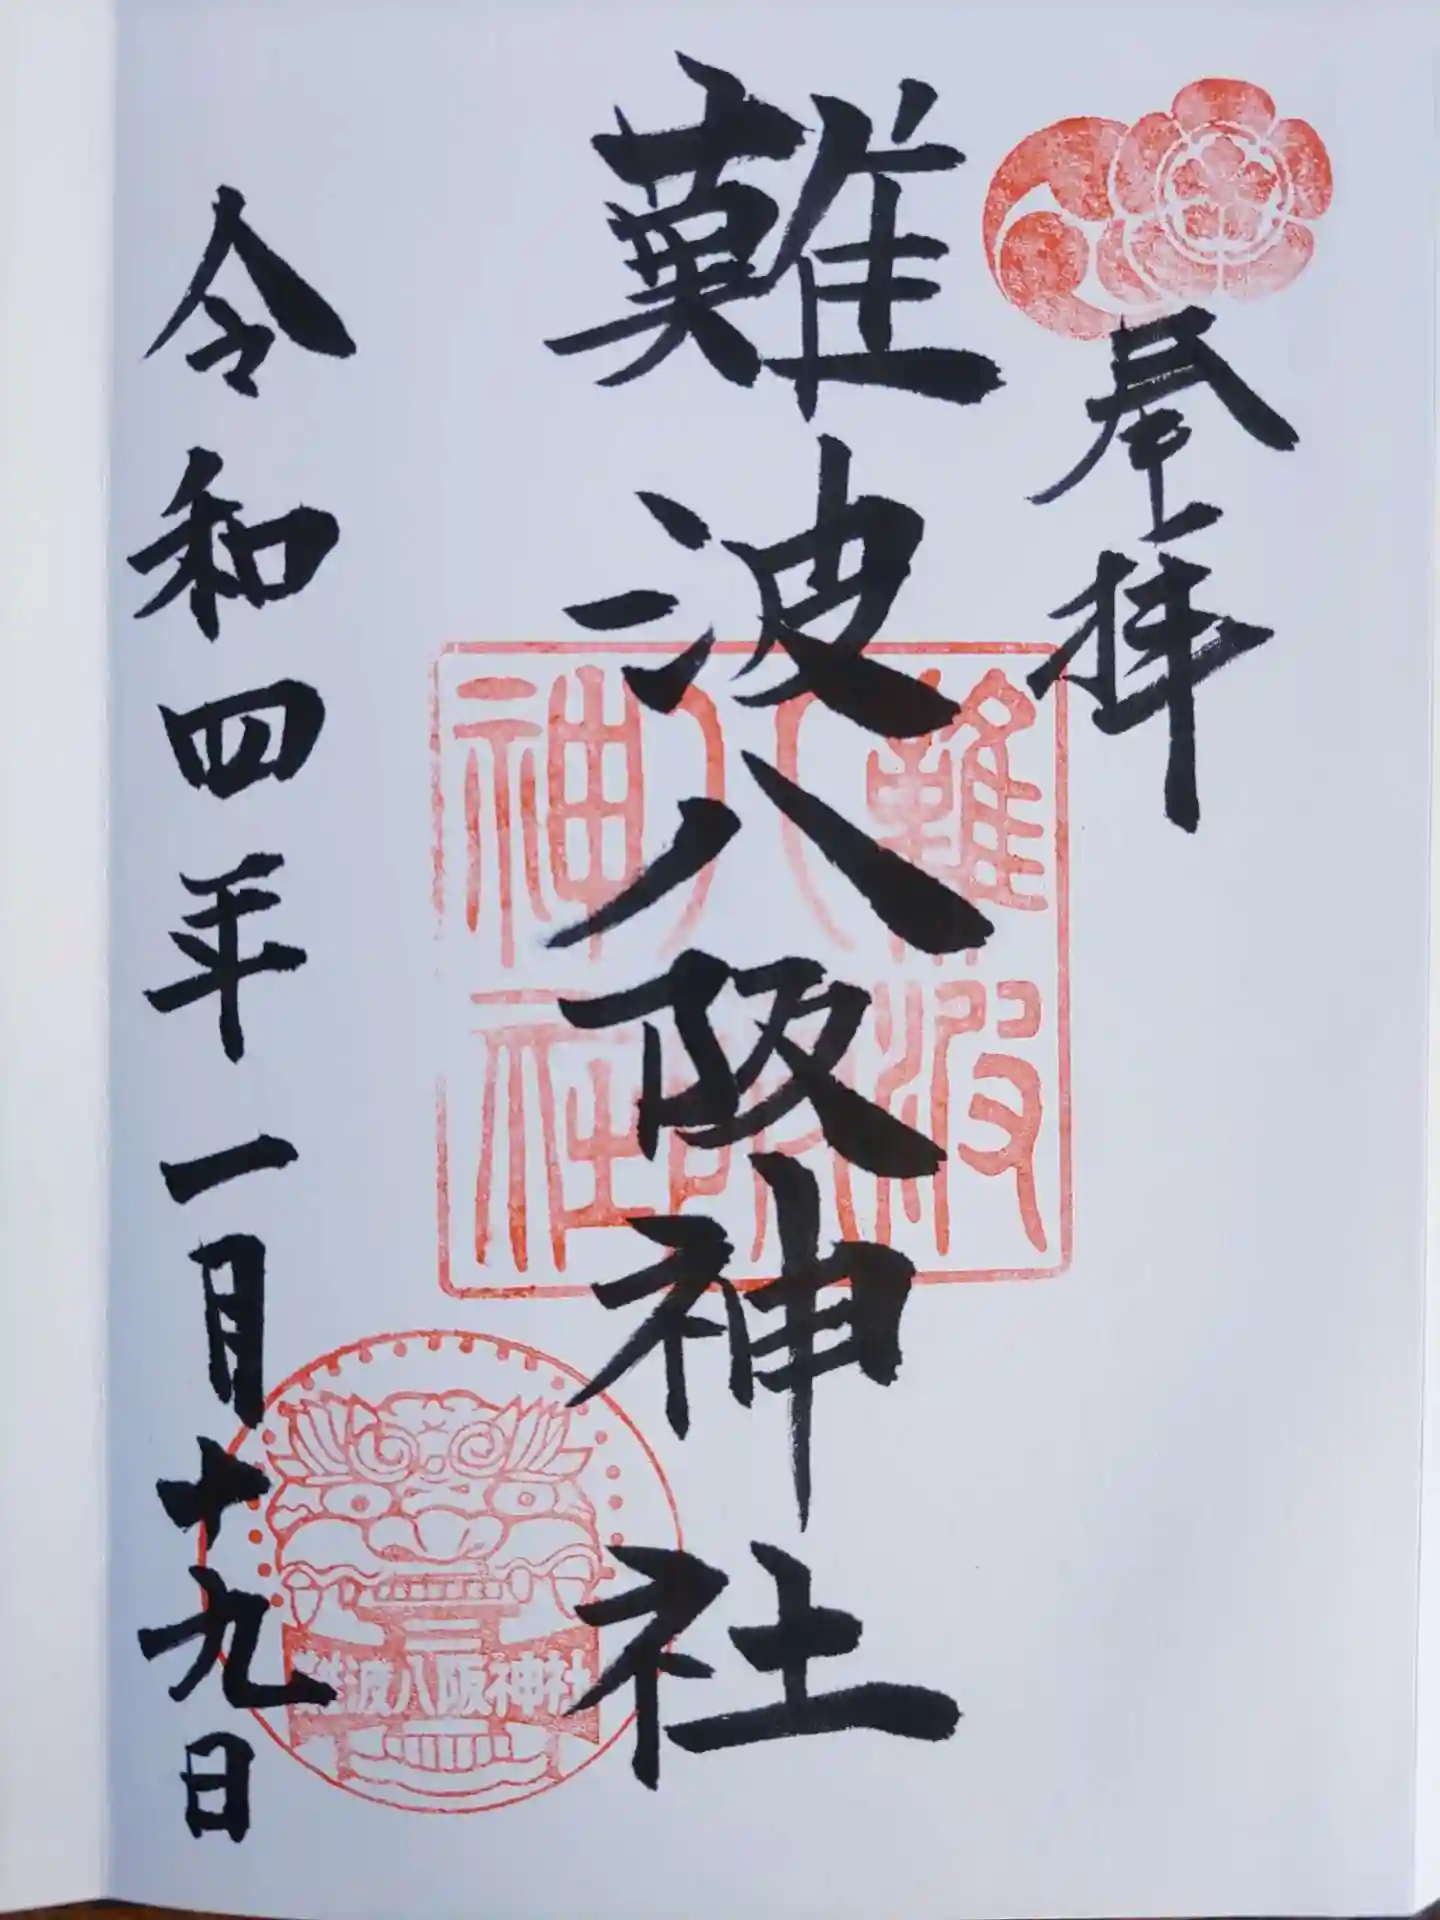 奉拝
難波八阪神社
難波
八阪
神社
難波八阪神社
令和四年一月十九日